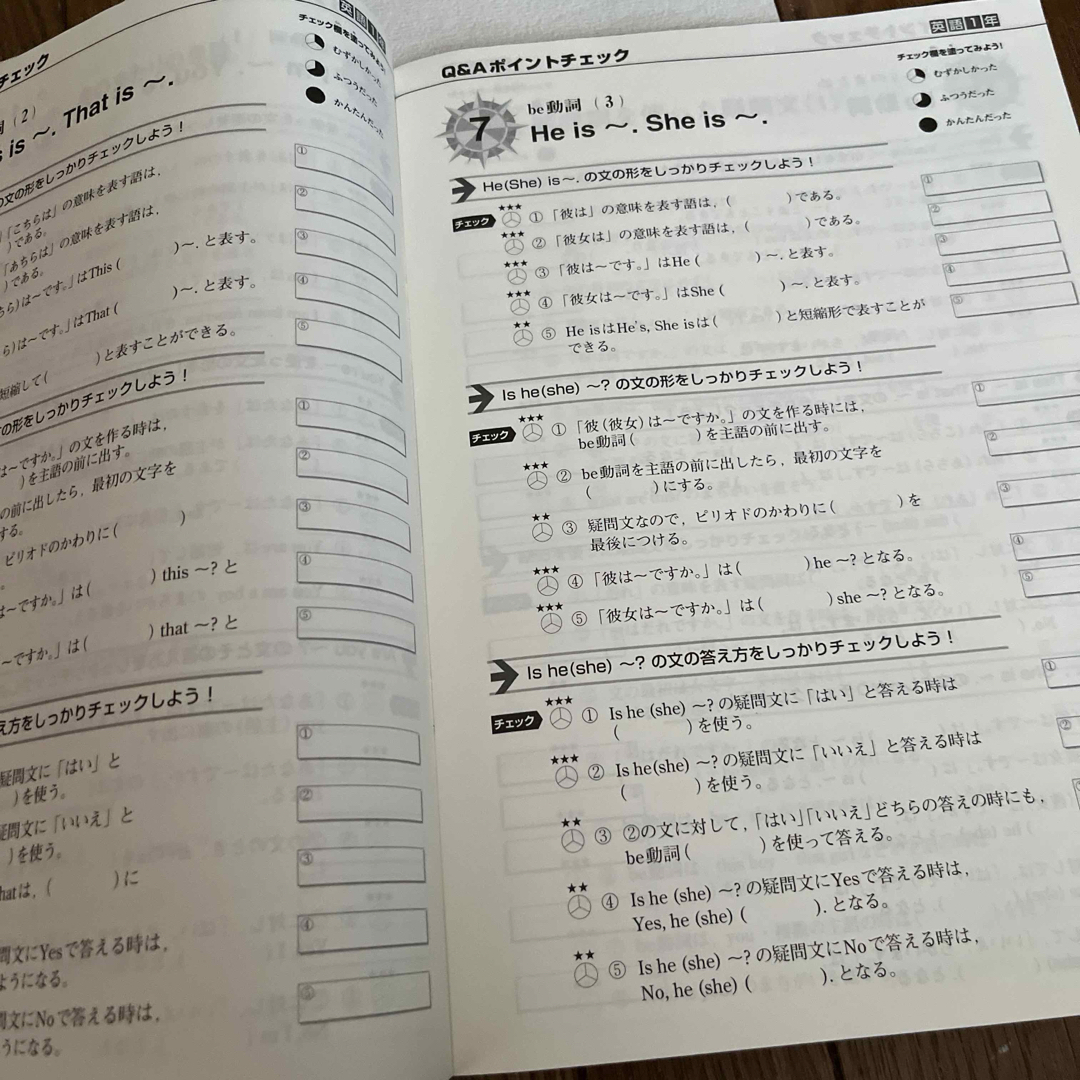 チェック
英語1年
チェック欄を塗ってみよう!
むずかしかった
ふつうだった
かんたんだった
詞(2)
is ~. That is ~.
の文の形をしっかりチェックしよう!
「こちらは」の意味を表す語は,
)である。
①
「あちらは」の意味を表す語は,
)である。
②
ら)は~です。」はThis(　　)~. と表す。
③
ら)は~です。」はThat(　　)~. と表す。
④
短縮して(　　)と表すことができる。
⑤
の形をしっかりチェックしよう!
は~ですか。」の文を作る時は,
)を主語の前に出す。
①
の前に出したら, 最初の文字を
する。
②
ピリオドのかわりに(　　)
③
は~ですか。」は(　　) this ~? と
④
~ですか。」は(　　) that ~? と
⑤
え方をしっかりチェックしよう!
疑問文に「はい」と
)を使う。
①
疑問文に「いいえ」と
)を使う。
②
thatは, (　　)に
③
問文にYesで答える時は,
ようになる。
④
問文にNoで答える時は,
うになる。
⑤
英語1年
Q&Aポイントチェック
チェック欄を塗ってみよう!
むずかしかった
ふつうだった
かんたんだった
7
be動詞(3)
He is ~. She is ~.
He(She) is~. の文の形をしっかりチェックしよう!
チェック ★★★ ①「彼は」の意味を表す語は, (　　)である。
①
★★★ ②「彼女は」の意味を表す語は, (　　)である。
②
★★★ ③「彼は~です。」はHe(　　)~. と表す。
③
★★★ ④「彼女は~です。」はShe(　　)~. と表す。
④
★★ ⑤ He isはHe's, She isは(　　)と短縮形で表すことが
できる。
⑤
Is he(she) ~? の文の形をしっかりチェックしよう!
チェック ★★★ ①「彼(彼女)は~ですか。」の文を作る時には,
be動詞(　　)を主語の前に出す。
①
★★★ ② be動詞を主語の前に出したら, 最初の文字を
(　　)にする。
②
★★ ③ 疑問文なので, ピリオドのかわりに(　　)を
最後につける。
③
★★★ ④「彼は~ですか。」は(　　)he ~? となる。
④
★★★ ⑤「彼女は~ですか。」は(　　)she ~? となる。
⑤
Is he(she) ~? の文の答え方をしっかりチェックしよう!
チェック ★★★ ① Is he (she) ~? の疑問文に「はい」と答える時は
(　　)を使う。
①
★★★ ② Is he(she) ~? の疑問文に「いいえ」と答える時は
(　　)を使う。
②
★★ ③ ②の文に対して,「はい」「いいえ」どちらの答えの時にも,
be動詞(　　)を使って答える。
★★ ④ Is he (she) ~? の疑問文にYesで答える時は,
Yes, he (she) (　　). となる。
★★ ⑤ Is he (she) ~? の疑問文にNoで答える時は,
No, he (she) (　　). となる。